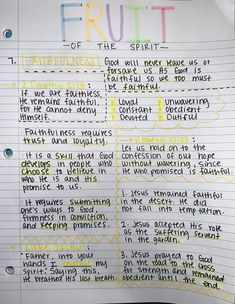 FRUIT
— OF THE SPIRIT —
7. FAITHFULNESS
God will never leave us or
forsake us. As God is
faithful so we too must
be faithful.
2 Timothy 2:13:
If we are faithless,
He remains faithful,
for He cannot deny
Himself.
Loyal
Constant
Devoted
Unwavering
Obedient
Dutiful
Faithfulness requires
trust and loyalty.
It is a skill that God
develops in people who
choose to believe in
who He is and His
promise to us.
It requires submitting
one's ways to God,
firmness in conviction,
and keeping promises.
"Father, into your
hands I
my
Spirit." Saying this,
He breathed His last breath.
Let us hold on to the
confession of our hope
without wavering, since
He who promised is faithful.
1. Jesus remained faithful
in the desert. He did
not fall into temptation.
2. Jesus accepted His role
as the suffering servant
in the garden.
3. Jesus prayed to God
on the road to the cross
for strength and remained
obedient until the end.